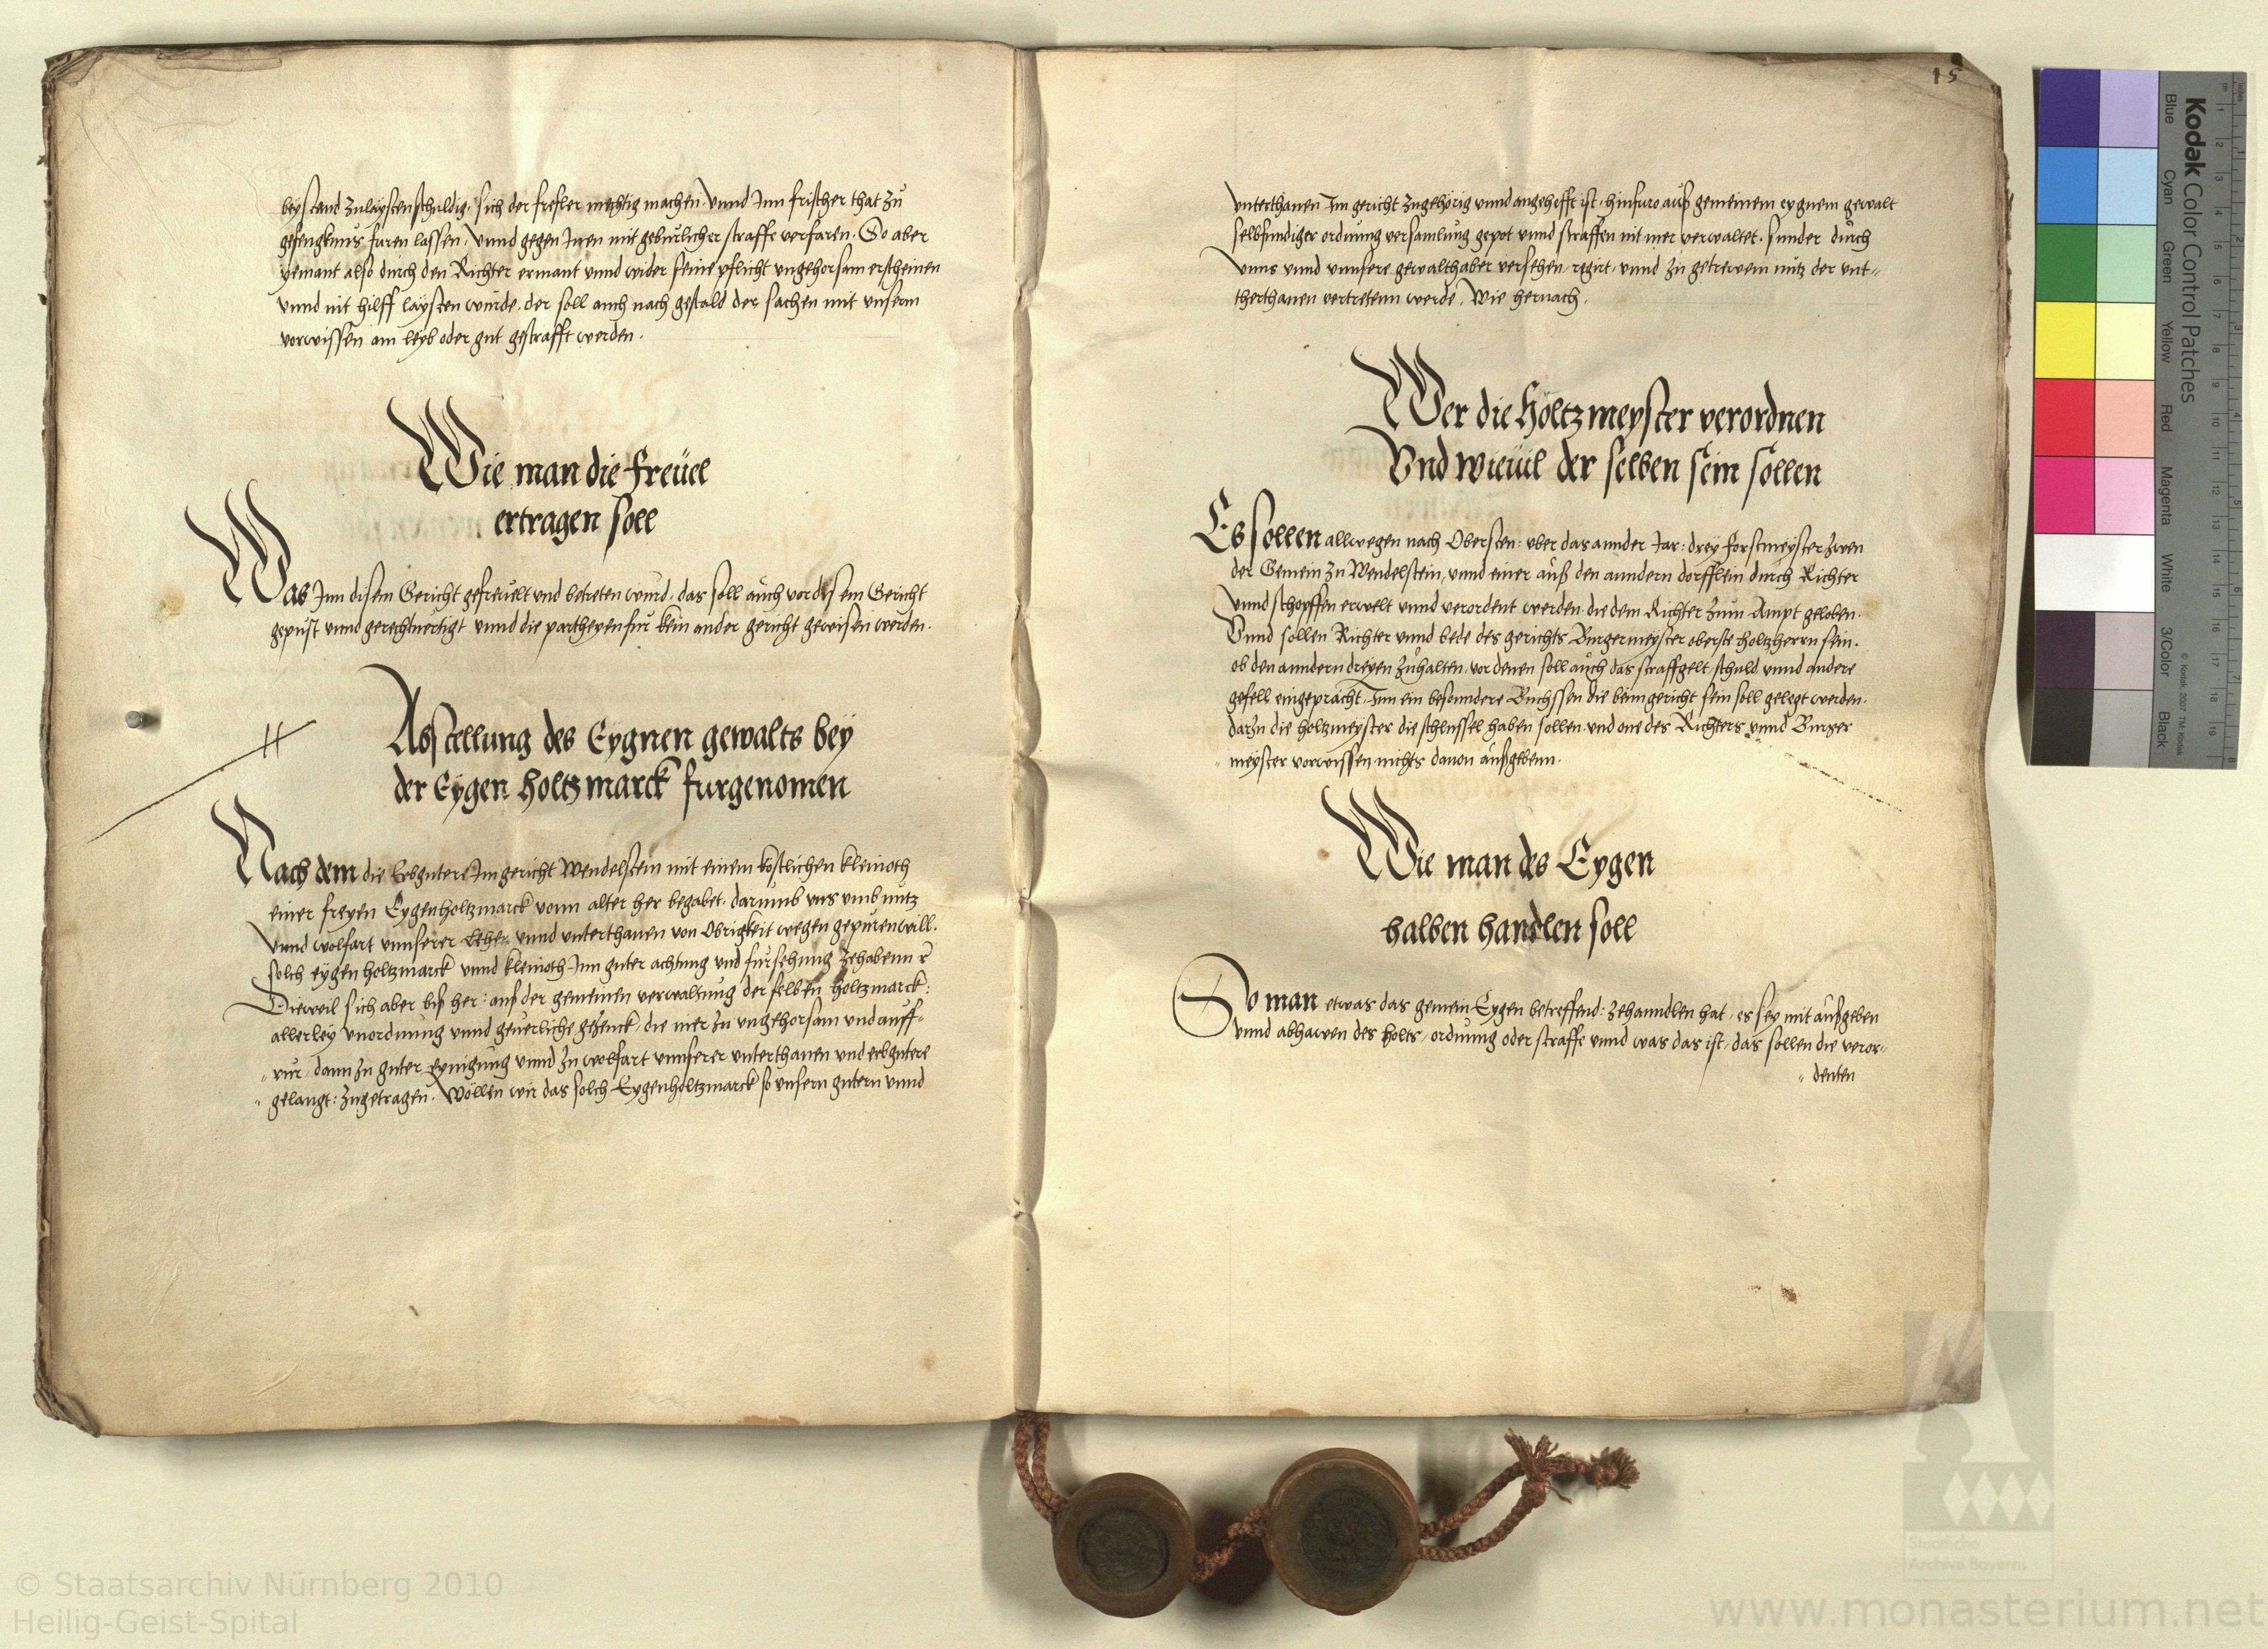 beystand zulaysten schuldig, sich der frefler mechtig machen, vnnd Inn frischer that zu
gefengknus furen lassen, vnnd gegen Inen mit geburlicher straffe verfaren. So aber
yemant also durch den Richter ermant vnnd wider seine pflicht vngehorsam erscheinen
vnnd nit hilff laysten wurde, der soll auch nach gestald der sachen mit vnserm
vorwissen am leyb oder gut gestrafft werden.
Wie man die freüel
ertragen soll
Was Inn disem Gericht gefreuelt vnd betreten wurd, das soll auch vor disem Gericht
gepust vnnd gerechtuertigt vnnd die partheyen fur kein ander gericht gewisen werden.
Abstellung des Eygnen gewalts bey
der Eygen holtzmarck furgenomen
Nach dem die Erbgutere Im gericht Wendelstein mit einem kostlichen kleinoth
einer freyen Eygenholtzmarck vonn alter her begabet, darumb vns vmb nutz
vnnd wolfart vnnserer Lehen vnnd vnterthanen von Obrigkeit wegen gepuren will.
solch eygen holtzmarck vnnd kleinoth Inn guter achtung vnd fursehung zehabenn
Dieweil sich aber biß her: auß der gemeinen verwaltung der selben holtzmarck:
allerley vnordnung vnnd geuerliche gezenck, die mer zu vngehorsam vnd auff-
rur, dann zu guter eynigung vnnd zu wolfart vnnserer vnterthanen vnd erbgutere
gelangt: zugetragen. Wöllen wir das solch Eygenholtzmarck so vnsern gutern vnnd
15
vnterthanen Im gericht zugehorig vnnd angehefft ist, hinfuro auß gemeinem eygnem gewalt
selbfundiger ordnung versamlung gepot vnnd straffen nit mer verwaltet, sunder durch
vnns vnnd vnnsere gewalthaber versehen, regirt, vnnd zu getrewem nutz der vnt-
therthanen vertretenn werde. Wie hernach.
Wer die höltzmeyster verordnen
Vnd wieuil der selben sein söllen
Es sollen allwegen nach Obersten: vber das annder Jar: drey forstmeyster zwen
der Gemein zu Wendelstein, vnnd einer auß den anndern dorfflein durch Richter
vnnd schopffen erwelt vnnd verordent werden, die dem Richter zum Ampt geloben.
Vnnd sollen Richter vnnd bede des gerichts Burgermeyster oberste holtzherrn sein.
ob den anndern dreyen zuhalten, vor denen soll auch das straffgelt schuld vnnd andere
gefell eingepracht, Inn ein besonndere Buchssen die beim gericht sein soll gelegt werden.
darzu die holtzmeyster die schlussel haben sollen, vnd one des Richters vnnd Burger
meyster vorwissen nichts dauon außgebenn.
Wie man des Eygen
halben handlen soll
So man etwas das gemein Eygen betreffend: zehanndlen hat, es sey mit außgeben
vnnd abhawen des holts, ordnung oder straffe vnnd was das ist, das sollen die veror-
denten
Kodak Color Control Patches
Blue Cyan Green Yellow Red Magenta White 3/Color Black
© Kodak, 2007 TM: Kodak
© Staatsarchiv Nürnberg 2010
Heilig-Geist-Spital
Staatliche
Archive Bayerns
www.monasterium.net